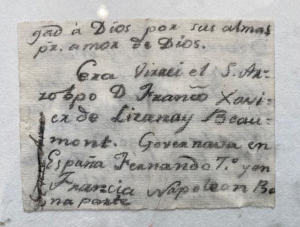 gad â Dios por sus almas
pr. amor de Dios.
Era Virrei el S. Ar-
zobpo D Franco Xavi-
er de Lizanay Beau-
mont. Governava en
España Fernando 7.º y en
Francia Napoleon Bo
naparte